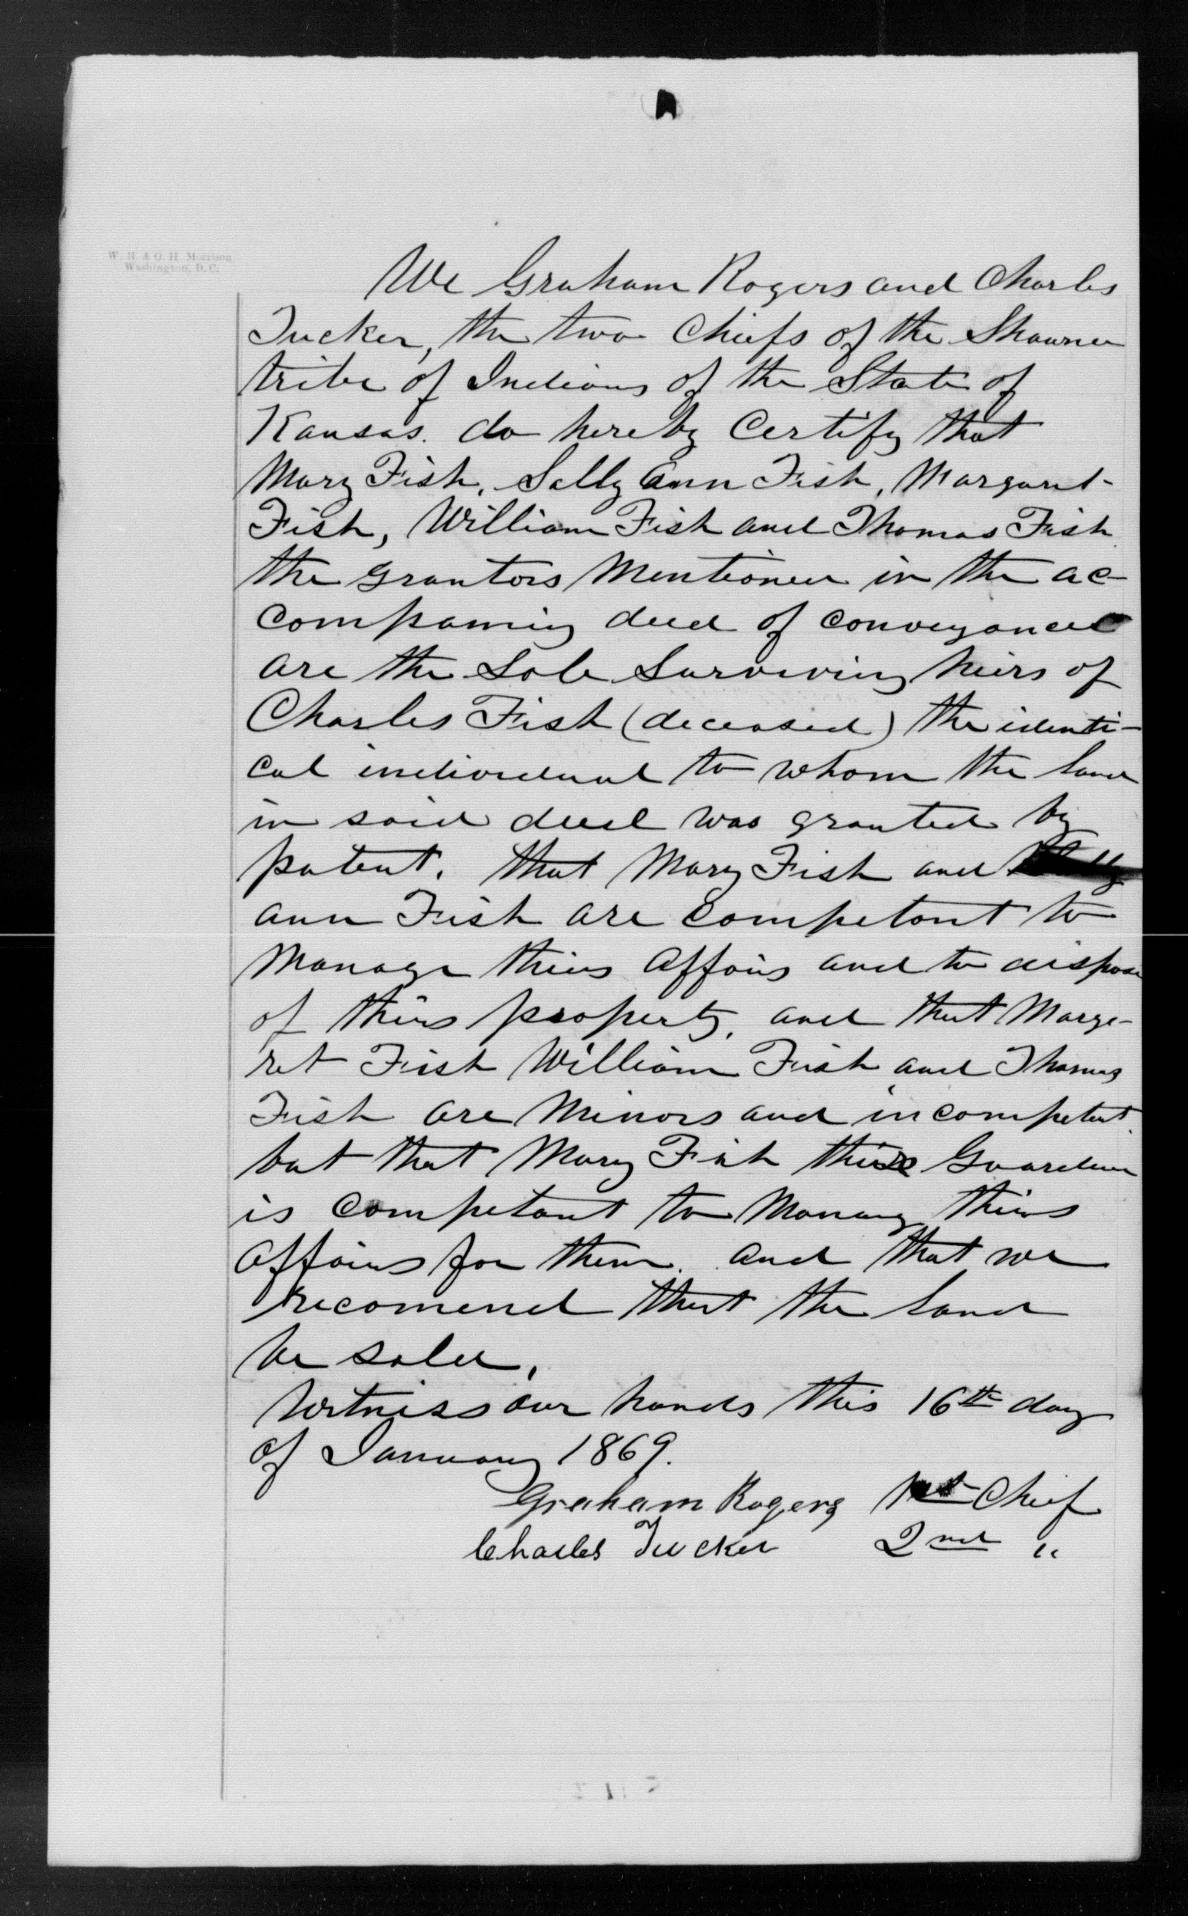 W. H. & O. H. Morrison,
Washington, D.C.
We Graham Rogers and Charles
Tucker, the two Chiefs of the Shawnee
tribe of Indians of the State of
Kansas. do hereby Certify that
Mary Fish, Sally Ann Fish, Margaret
Fish, William Fish and Thomas Fish
the grantors Mentioned in the ac-
companing deed of conveyance
are the Sole Surviving heirs of
Charles Fish (deceased) the identi-
cal individual to whom the land
in said deed was granted by
patent. that Mary Fish and Sally
ann Fish are Competant to
Manage thier affairs and to dispose
of thier property, and that Marga-
ret Fish William Fish and Thomas
Fish are Minors and incompetent.
but that Mary Fish thier Guardian
is Competant to Manag thier
affairs for them. and that we
recomend that the land
be sold,
Witness our hands this 16th day
of January 1869.
Graham Rogers 1st Chief
Charles Tucker 2nd "